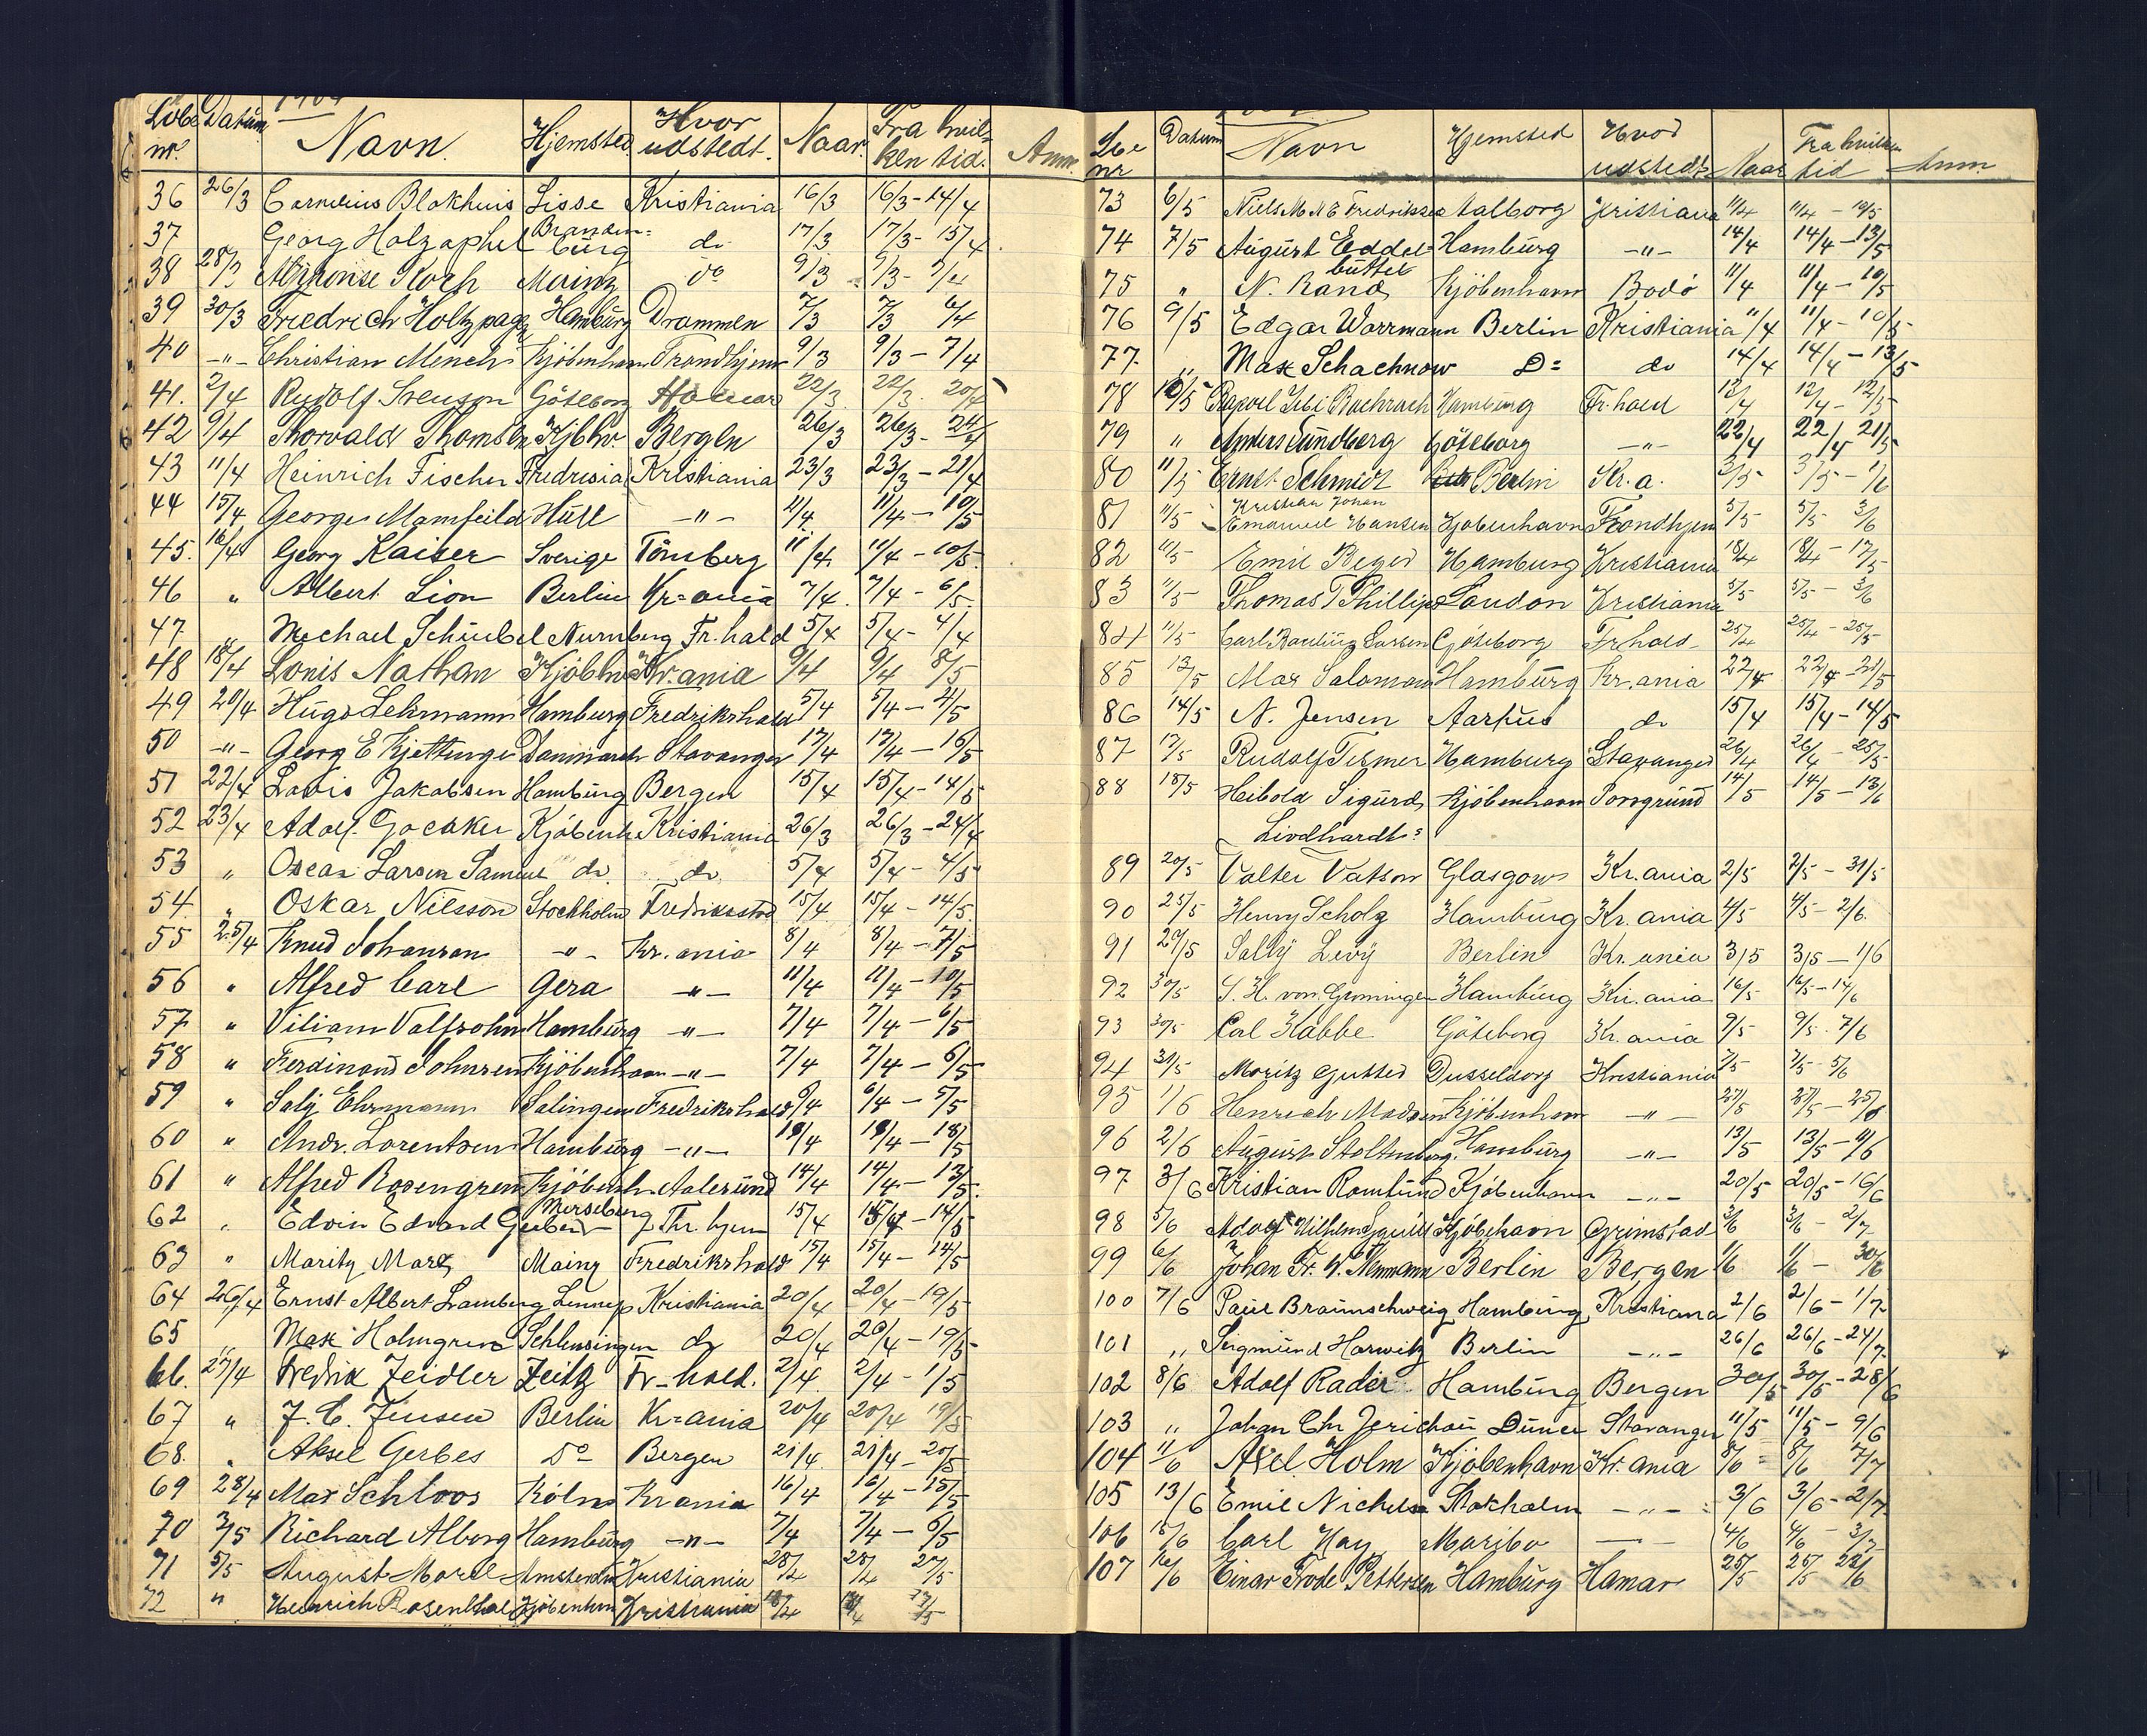 Løbe nr. Datum Navn Hjemsted Hvor udstedt. Naar. Fra hvilken tid. Anm.
36 26/3 Cornelius Blokhuis Lisse Kristiania 16/3 16/3 - 14/4
37 Georg Holzaphel Brandenburg do 17/3 17/3 - 15/4
38 28/3 Alphonse Koch Mainz do 9/3 9/3 - 7/4
39 30/3 Friedrich Hamburg Drammen 7/3 7/3 6/4
40 -"- Christian Mench Kjöbenhavn Trondhjem 9/3 9/3 - 7/4
41. 2/4 Rudolf Svenson Göteborg Hamar 22/3 22/3 20/4
42 9/4 Thorvald Thomsen Kjbhv Bergen 26/3 26/3 - 24/4
43 11/4 Heinrich Fischer Fredricia Kristiania 23/3 23/3 - 21/4
44 15/4 George Mamfeild Hull -"- 11/4 11/4 - 10/5
45. 16/4 Georg Kaiser Sverige Tönsberg 11/4 11/4 - 10/5
46 " Albert Lion Berlin Kr=ania 7/4 7/4 - 6/5
47 " Mechael Schubel Nurnberg Fr.hald 5/4 5/4 - 4/4
48 18/4 Louis Nathan Kjöbhv Kr.ania 9/4 9/4 8/5
49 20/4 Hugo Lehmann Hamburg Fredrikshald 5/4 5/4 - 4/5
50 -"- Georg E Kjettinge Danmark Stavanger 17/4 17/4 - 16/5
51 22/4 Lovis Jakobsen Hamburg Bergen 15/4 15/4 - 14/5
52 23/4 Adolf Kjöbenh Kristiania 26/3 26/3 - 24/4
53 " Oscar Larsen Samuel do do 5/4 5/4 - 4/5
54 " Oskar Nilsson Stockholm Fredriksstad 15/4 15/4 - 14/5
55 25/4 Knud Johansen -"- Kr.ania 8/4 8/4 - 7/5
56 " Alfred Carl Gera -"- 11/4 11/4 - 10/5
57 " Viliam Valfsohn Hamburg -"- 7/4 7/4 - 6/5
58 " Ferdinand Johnsen Kjöbenhavn -"- 7/4 7/4 - 6/5
59 " Saly Ehrmann Solingen Fredrikshald 6/4 6/4 - 5/5
60 " Andr. Lorentsen Hamburg -"- 19/4 19/4 - 18/5
61 " Alfred Rosengren Kjöbenh Aalesund 14/4 14/4 - 13/5
62 " Edvin Edvard Gerber Merseburg Thr.hjem 15/4 15/4 - 14/5
63 " Moritz Marx Mainz Fredrikshald 15/4 15/4 - 14/5
64 26/4 Ernst Albert Lamberg Lennep Kristiania 20/4 20/4 - 19/5
65 " Max Holmgren Schleusingen do 20/4 20/4 - 19/5
66. 27/4 Fredrik Zeidler Zeitz Fr-hald. 2/4 2/4 - 1/5
67 " J. C. Jensen Berlin Kr=ania 20/4 20/4 19/5
68. " Aksel Gerbes Do Bergen 21/4 21/4 - 20/5
69 28/4 Max Schloos Köln Krania 16/4 16/4 - 15/5
70 2/5 Richard Alborg Hamburg -"- 7/4 7/4 - 6/5
71 5/5 August Morel Amsterdm Kristiania 28/4 28/4 27/5
72 " Heinrich Rosenthal Kjøbenhvn Kristiania
Lbe nr Datum Navn Hjemsted Hvor udstedt Naar Fra hvilken tid Anm.
73 6/5 Niels M N E Fredriksen Aalborg Kristiana 11/4 11/4 - 10/5
74 7/5 August Eddelbüttel Hamburg -"- 14/4 14/4 - 13/5
75 " N. Rand Kjöbenhavn Bodö 11/4 11/4 - 10/5
76 9/5 Edgar Worrmann Berlin Kristiania 11/4 11/4 - 10/5
77. " Max Schachnow D= do 14/4 14/4 - 13/5
78 10/5 Bachrach Hamburg Fr.hald 13/4 13/4 - 12/5
79 " Anders Sundberg Göteborg -"- 22/4 22/4 21/5
80 11/5 Ernst Schmidt Berlin Kr.a. 3/5 3/5 - 1/6
81 11/5 Kristian Johan Emanuel Hansen Kjøbenhavn Trondhjem 5/5 5/5 3/6
82 11/5 Emil Reger Hamburg Kristiania 18/4 18/4 - 17/5
83 11/5 Thomas T Phillips London Kristiania 5/5 5/5 - 3/6
84 11/5 Carl Larsen Göteborg Frhald 25/4 25/4 - 25/5
85 13/5 Max Salomon Hamburg Kr.ania 22/4 22/4 - 21/5
86 14/5 N. Jensen Aarhus do 15/4 15/4 - 14/5
87 17/5 Rudolf Tesmer Hamburg Stavanger 26/4 26/4 - 25/5
88 18/5 Heibold Sigurd Lindhardt Kjöbenhavn Porsgrund 14/5 14/5 - 13/6
89 20/5 Valter Vatson Glasgow Kr.ania 2/5 2/5 - 31/5
90 25/5 Henry Scholz Hamburg Kr.ania 4/5 4/5 - 2/6
91 29/5 Sally Levy Berlin Kr.ania 3/5 3/5 - 1/6
92 30/5 S. H. von Groningen Hamburg Kr.ania 16/5 16/5 - 14/6
93 30/5 Cal Kabbe Göteborg Kr.ania 9/5 9/5 - 7/6
94 31/5 Moritz Gutted Dusseldorf Kristiania 7/5 7/5 5/6
95 1/6 Henrich Madsen Kjöbenhavn -"- 27/5 27/5 - 25/6
96 2/6 August Stoltenberg Hamburg -"- 13/5 13/5 - 11/6
97 3/6 Kristian Romlund Kjöbenhavn -"- 20/5 20/5 - 16/6
98 5/6 Adolf Wilhelm Kjöbehavn Grimstad 3/6 3/6 - 2/7
99 6/6 Johan Fr. W. Nemmann Berlin Bergen 1/6 1/6 - 30/6
100 7/6 Paul Braunschweig Hamburg Kristiana 2/6 2/6 - 1/7
101 " Seigmund Horwitz Berlin -"- 26/6 26/6 - 24/7
102 8/6 Adolf Rader Hamburg Bergen 30/5 30/5 - 28/6
103 " Johan Chr Jerichau Düner Stavanger 11/5 11/5 - 9/6
104 11/6 Axel Holm Kjöbenhavn Kr.ania 8/6 8/6 7/7
105 13/6 Emil Nichels Stokholm -"- 3/6 3/6 - 2/7
106 15/6 Carl Hay Maribo — 4/6 4/6 - 3/7
107 16/6 Einar Frode Pettersen Hamburg Hamar 25/5 25/5 22/6